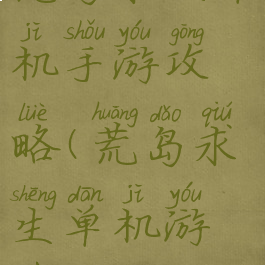 jī shǒu yóu gōng
机手游攻
lüè huāng dǎo qiú
略(荒岛求
shēng dān jī yóu
生单机游